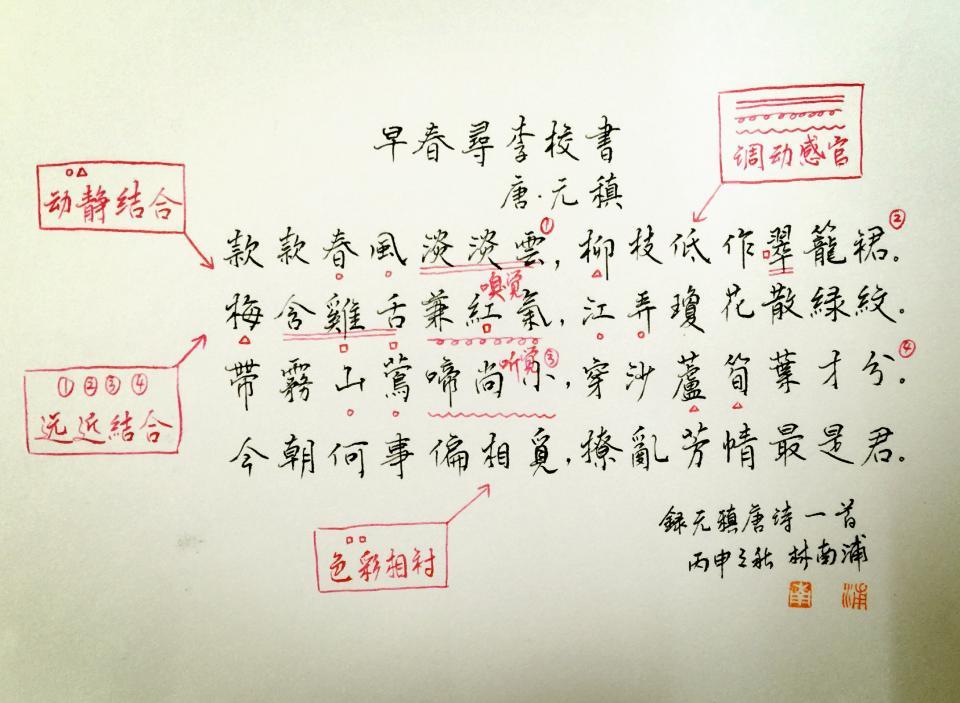 早春尋李校書
唐·元稹
款款春風淡淡雲，柳枝低作翠籠裙。
梅含雞舌兼紅氣，江弄瓊花散緑紋。
帶霧山鶯啼尚小，穿沙蘆筍葉才分。
今朝何事偏相覓，撩亂芳情最是君。
録元稹唐诗一首
丙申之秋 林南浦
动静结合
①②③④
远近结合
色彩相衬
调动感官
①
②
嗅觉
听觉
③
④